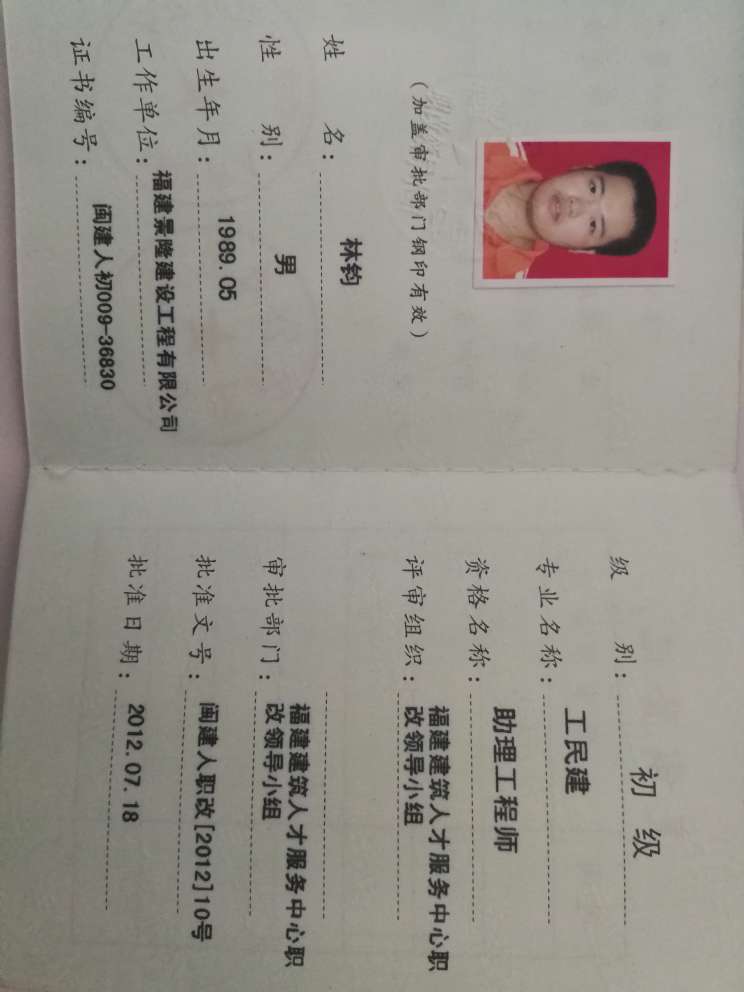 （加盖审批部门钢印有效）
姓 名：林钧
性 别：男
出生年月：1989.05
工作单位：福建景隆建设工程有限公司
证书编号：闽建人初009-36830
级 别：初级
专业名称：工民建
资格名称：助理工程师
评审组织：福建建筑人才服务中心职
改领导小组
审批部门：福建建筑人才服务中心职
改领导小组
批准文号：闽建人职改[2012]10号
批准日期：2012.07.18